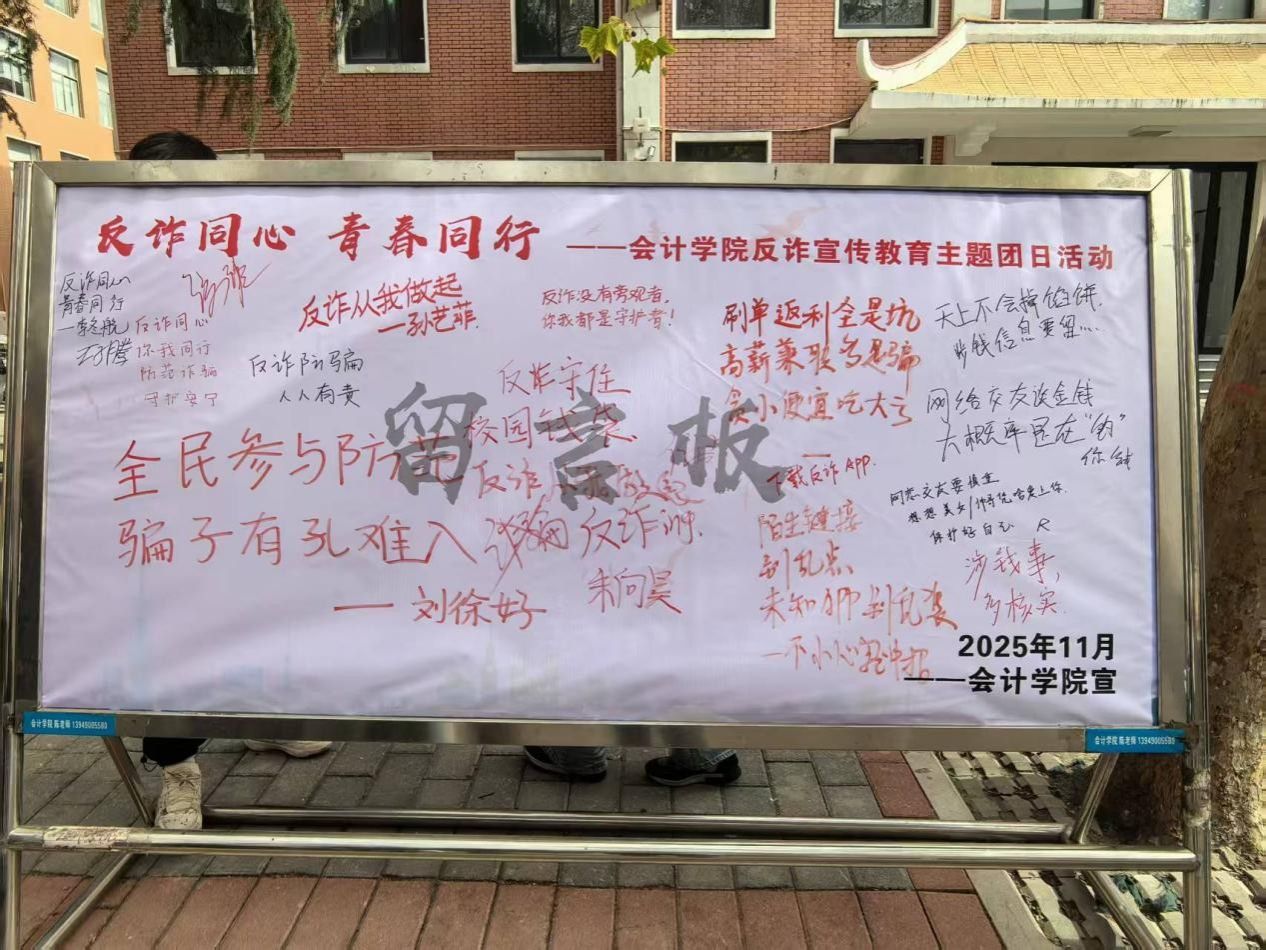 反诈同心 青春同行 ——会计学院反诈宣传教育主题团日活动
反诈同心
青春同行
反诈同心
你我同行
防范诈骗
守护安宁
反诈从我做起
—孙艺菲.
反诈防骗
人人有责
反诈没有旁观者,
你我都是守护者!
刷单返利全是坑
高薪兼职多是骗
贪小便宜吃大亏
天上不会掉馅饼,
网络交友谈金钱
大概率是在"钓"
你钱
留言板
反诈守住
校园钱袋
反诈
全民参与防范
骗子有孔难入
— 刘徐好
反诈
朱向昊
下载反诈APP.
陌生链接
别乱点
网恋交友要慎重
保护好自己
涉钱事,
多核实.
2025年11月
——会计学院宣
会计学院 陈老师 13949005580
会计学院 陈老师 13949005580